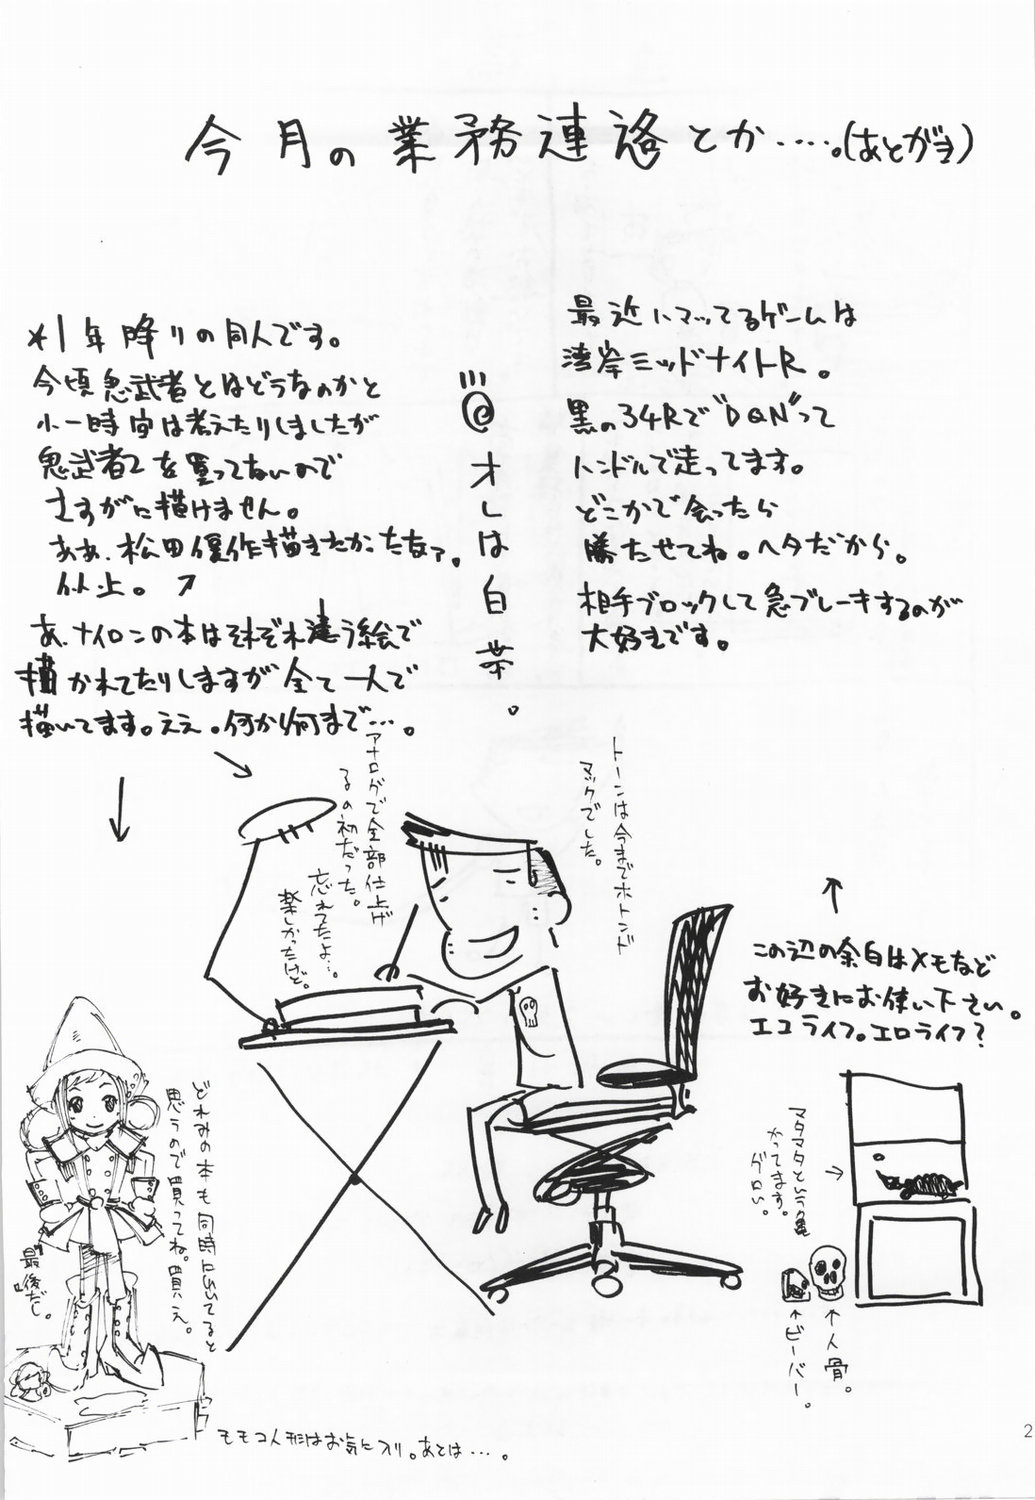 今月の業務連絡とか‥‥。(あとがき)
最近ハマッてるゲームは
湾岸ミッドナイトR。
黒の34Rで"DQN"って
ハンドルで走ってます。
どこかで会ったら
勝たせてね。ヘタだから。
相手ブロックして急ブレーキするのが
大好きです。
オレは白 。
*1年降りの同人です。
今頃鬼武者とはどうなのかと
小一時間は考えたりしましたが
鬼武者2を買ってないので
さすがに描けません。
ああ、松田優作描きたかったなァ。
以上。↗
あ、ナイロンの本はそれぞれ違う絵で
描かれてたりしますが全て一人で
描いてます。ええ。何から何まで…。
トーンは今までホトンド
マックでした。
アナログで全部仕上げ
るの初だった。
忘れてたよ…。
楽しかったけど。
この辺の余白はメモなど
お好きにお使い下さい。
エコライフ。エロライフ?
マタマタという亀
かってます。
グロい。
←人骨。
←ビーバー。
どれみの本も同時に出てると
思うので買ってね。買え。
"最後だし。"
モモコ人形はお気に入り。あとは…。
2